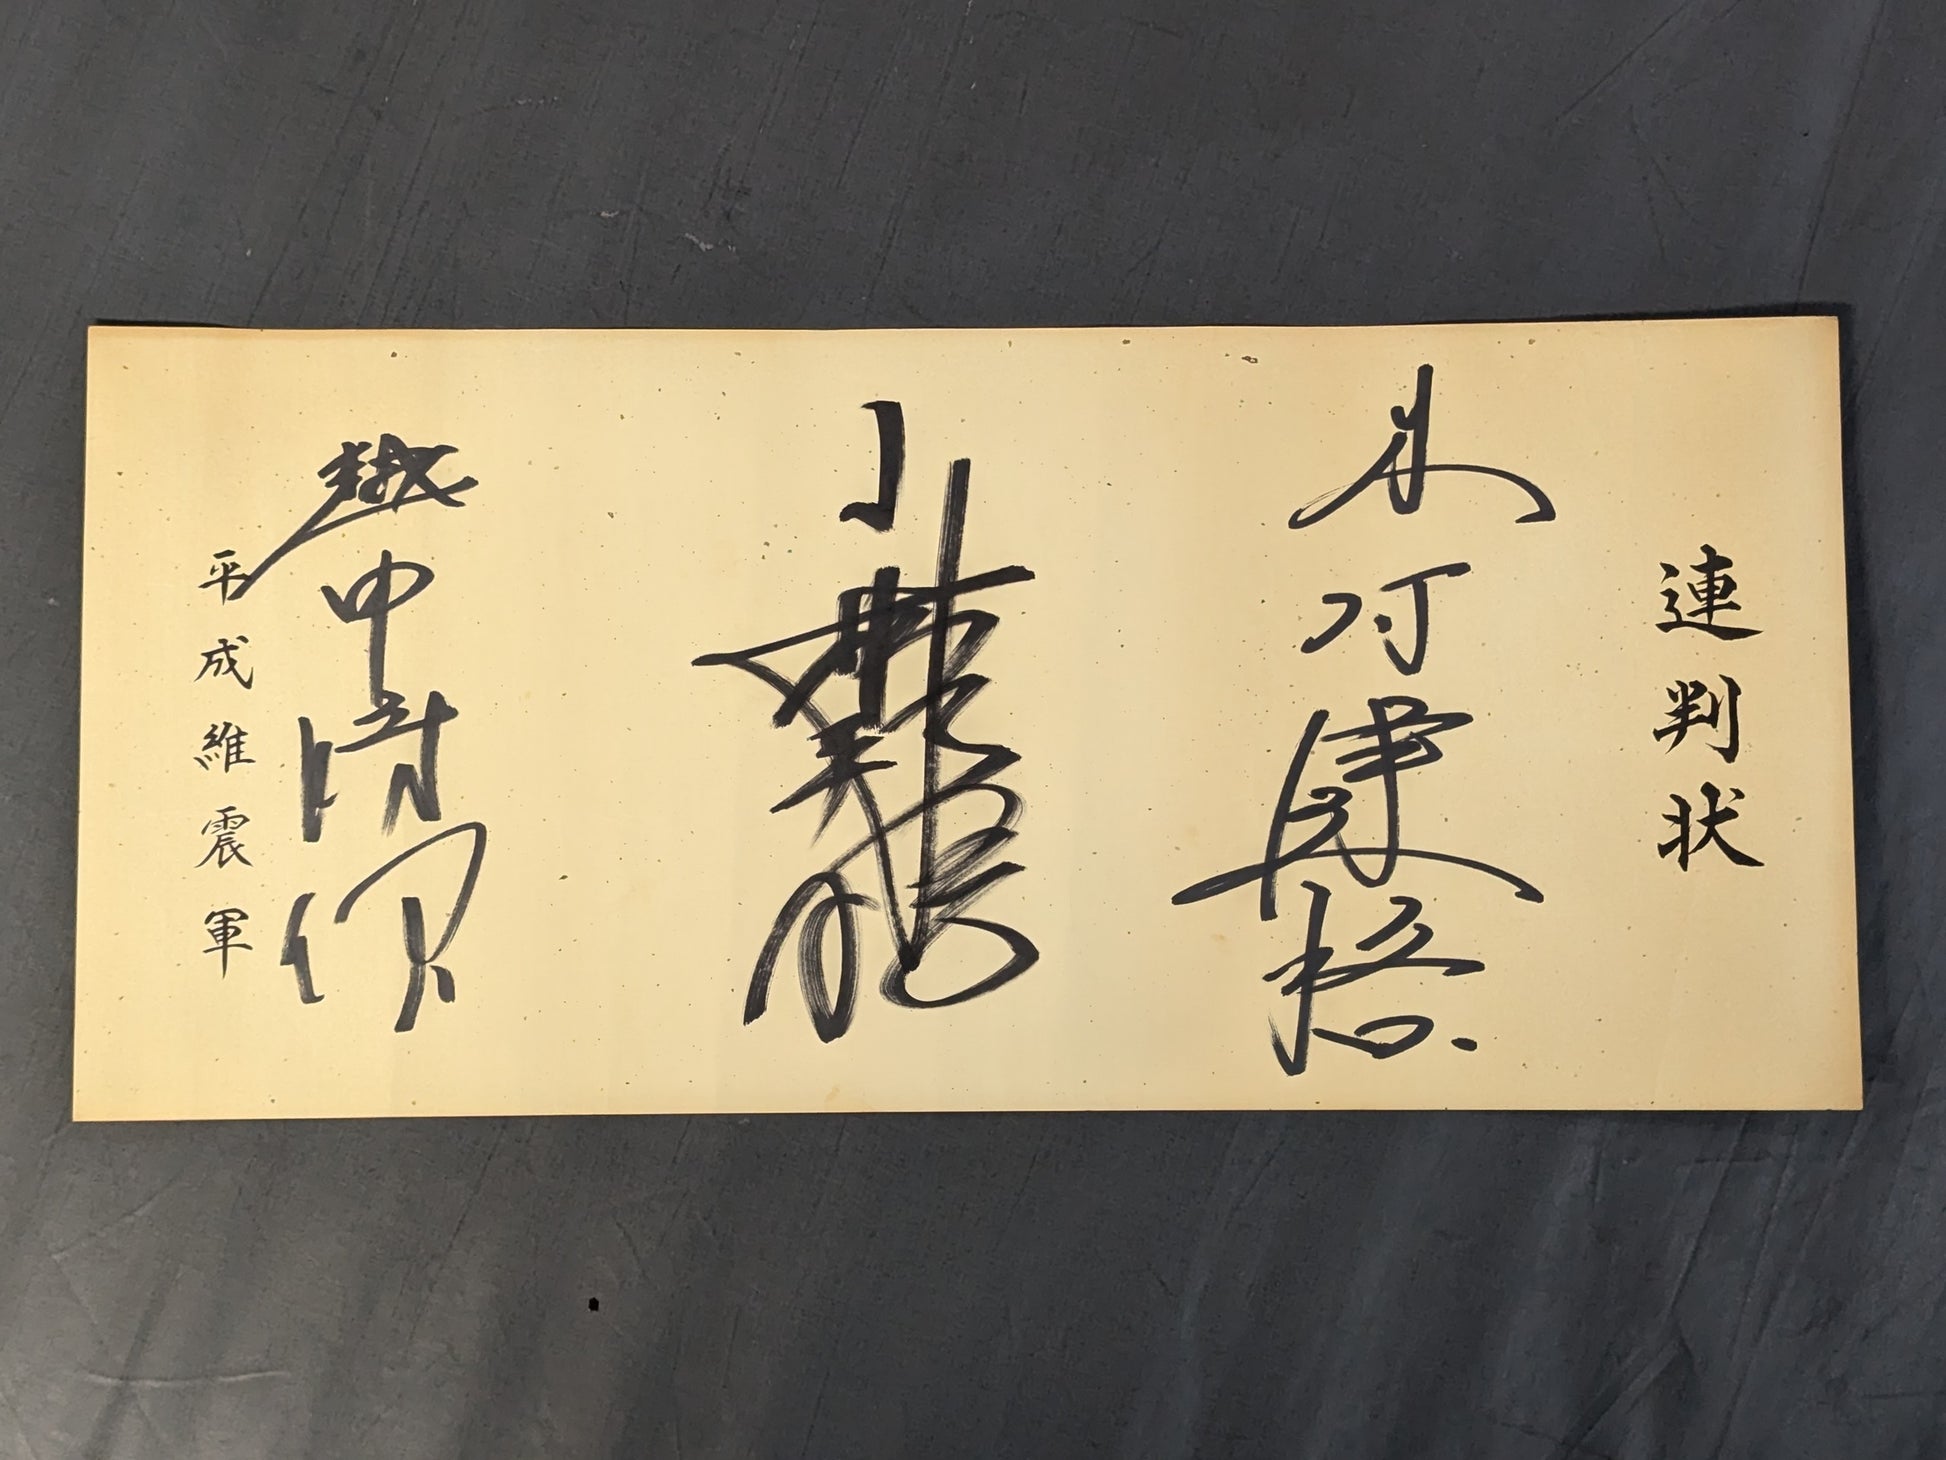 連判状
木村健悟
越中詩郎
平成維震軍